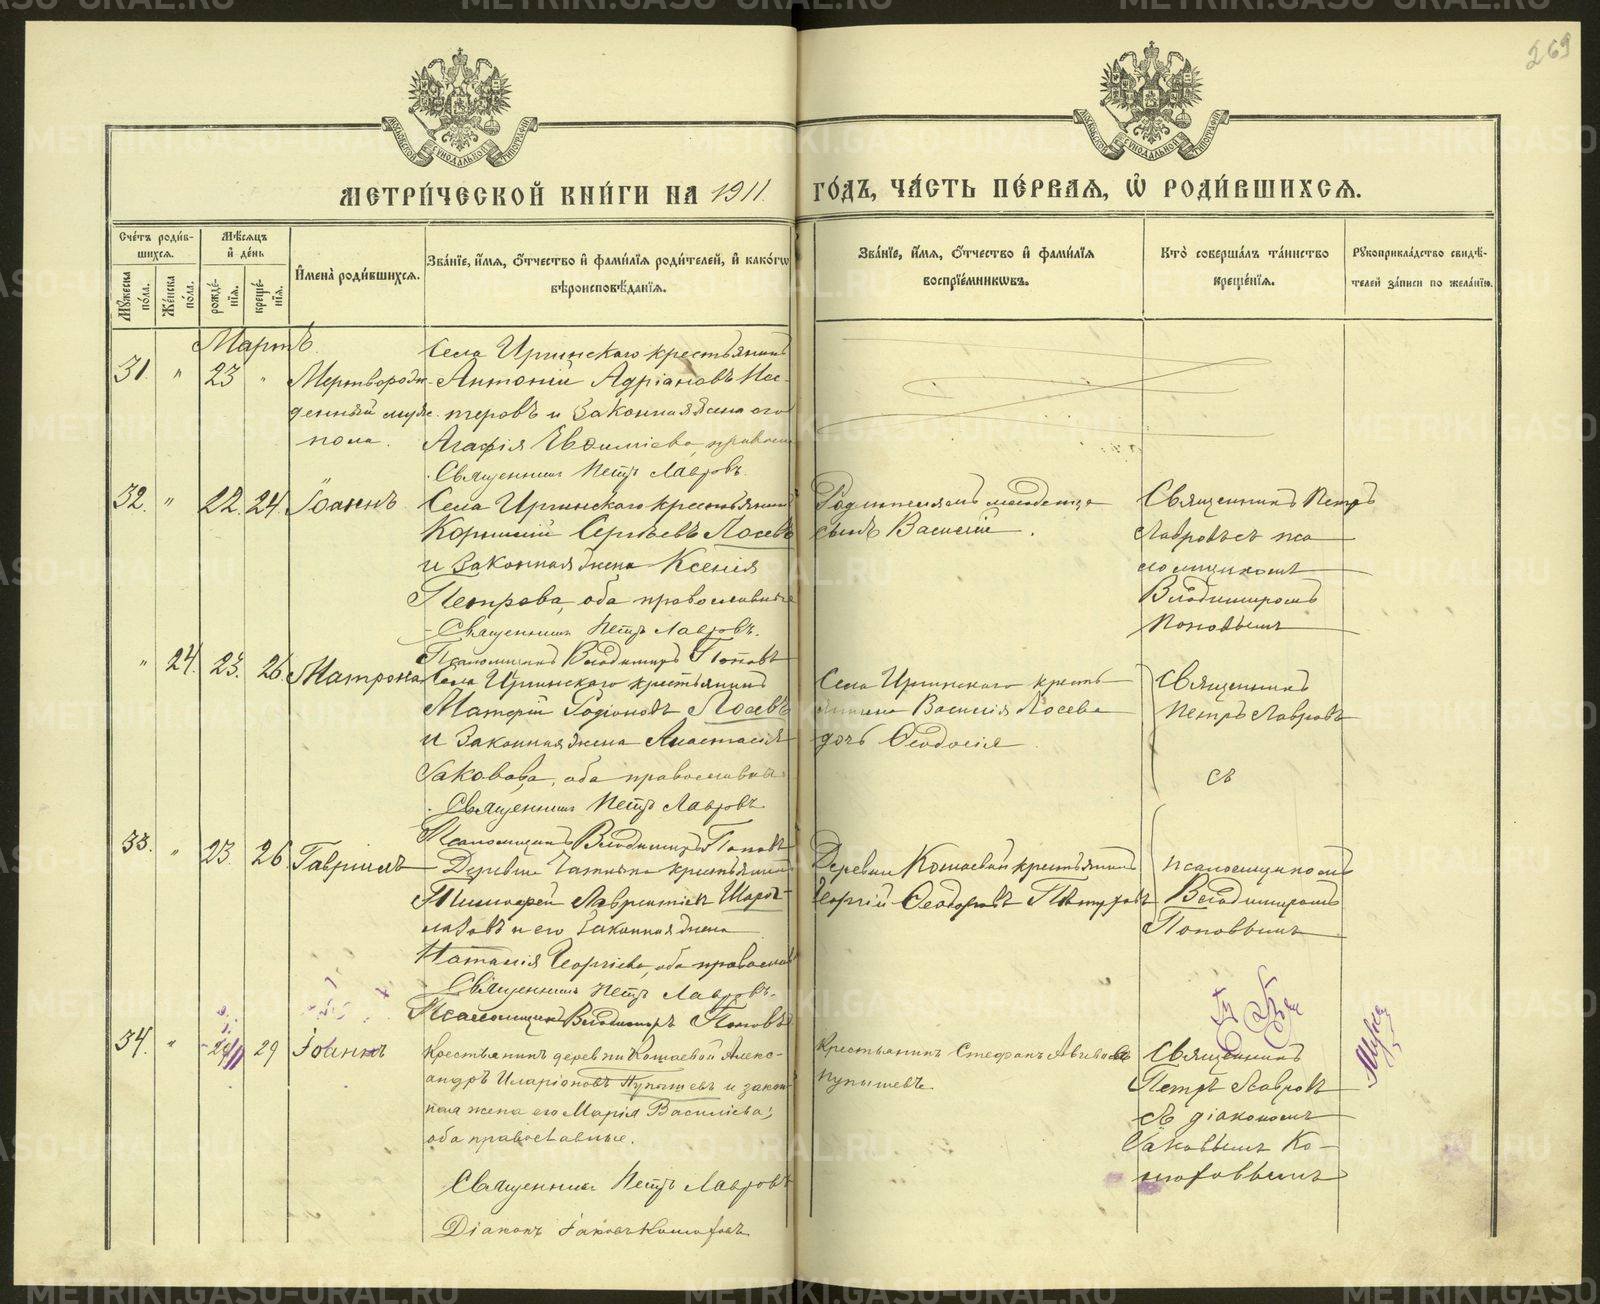 269
МОСКОВСКОЙ СѴНОДАЛЬНОЙ ТИПОГРАФІИ
МОСКОВСКОЙ СѴНОДАЛЬНОЙ ТИПОГРАФІИ
МЕТРИ́ЧЕСКОЙ КНИ́ГИ НА 1911 ГО́ДЪ, ЧА́СТЬ ПЕ́РВАЯ, Ѡ҆ РОДИ́ВШИХСЯ.
Сче́тъ роди́в-
шихся.
Мужеска по́ла.
Же́нска по́ла.
Мѣ́сяцъ
и҆ де́нь
рожде́-
нїя.
креще́-
нїя.
И҆мена̀ роди́вшихся.
Зва́нїе, и҆́мя, ѻ҆́тчество и҆ фами́лїя роди́телей, и҆ како́гѡ
вѣроисповѣ́данїя.
Зва́нїе, и҆́мя, ѻ҆́тчество и҆ фами́лїя
воспрїе́мникѡвъ.
Кто̀ соверша́лъ та́инство
креще́нїя.
Рꙋкоприкла́дство свидѣ́-
телей за́писи по жела́нїю.
Мартъ
31. " 23 "
Мертворож-
денный муж.
пола.
Села Иргинскаго крестьянинъ
Антоній Адріановъ Нес-
теровъ и законная жена его
Агафія Евфиміева, правосл
Священникъ Петръ Лавровъ.
32. " 22. 24. Іоаннъ
Села Иргинскаго крестьянинъ
Корнилій Сергѣевъ Лосевъ
и законная жена Ксенія
Петрова, оба православные
Священникъ Петръ Лавровъ.
Псаломщикъ Владимиръ Поповъ
сынъ Василій.
Священникъ Петръ
Лавровъ съ пса
ломщикомъ
Владимиромъ
Поповымъ
" 24. 23. 26. Матрона
Села Иргинскаго крестьянинъ
Родіоновъ Лосевъ
и законная жена Анастасія
Іаковова, оба православные
Священникъ Петръ Лавровъ
Псаломщикъ Владимиръ Поповъ
Села Иргинскаго кресть
янина Василія Лосева
дочь Ѳеодосія
Священникъ
Петръ Лавровъ
съ
33. " 23. 26 Гавріилъ
Деревни крестьянинъ
Тимоѳей Лаврентіевъ Шаро-
лазовъ и его законная жена
Наталія Георгіева, оба православ
Священникъ Петръ Лавровъ.
Псаломщикъ Владимиръ Поповъ
Деревни Кошаевой крестьянинъ
Георгій Ѳеодоровъ
псаломщикомъ
Владимиромъ
Поповымъ
34. " 29 Іоаннъ
Крестьянинъ деревни Кошаевой Алекс-
андръ Иларіоновъ Пупышевъ и закон-
ная жена его Марія Василіева;
оба православные.
Священникъ Петръ Лавровъ
Діаконъ Іаковъ
Крестьянинъ Стефанъ
Пупышевъ.
Священникъ
Петръ Лавровъ
съ діакономъ
Іаковымъ Ко-
METRIKI.GASO-URAL.RU